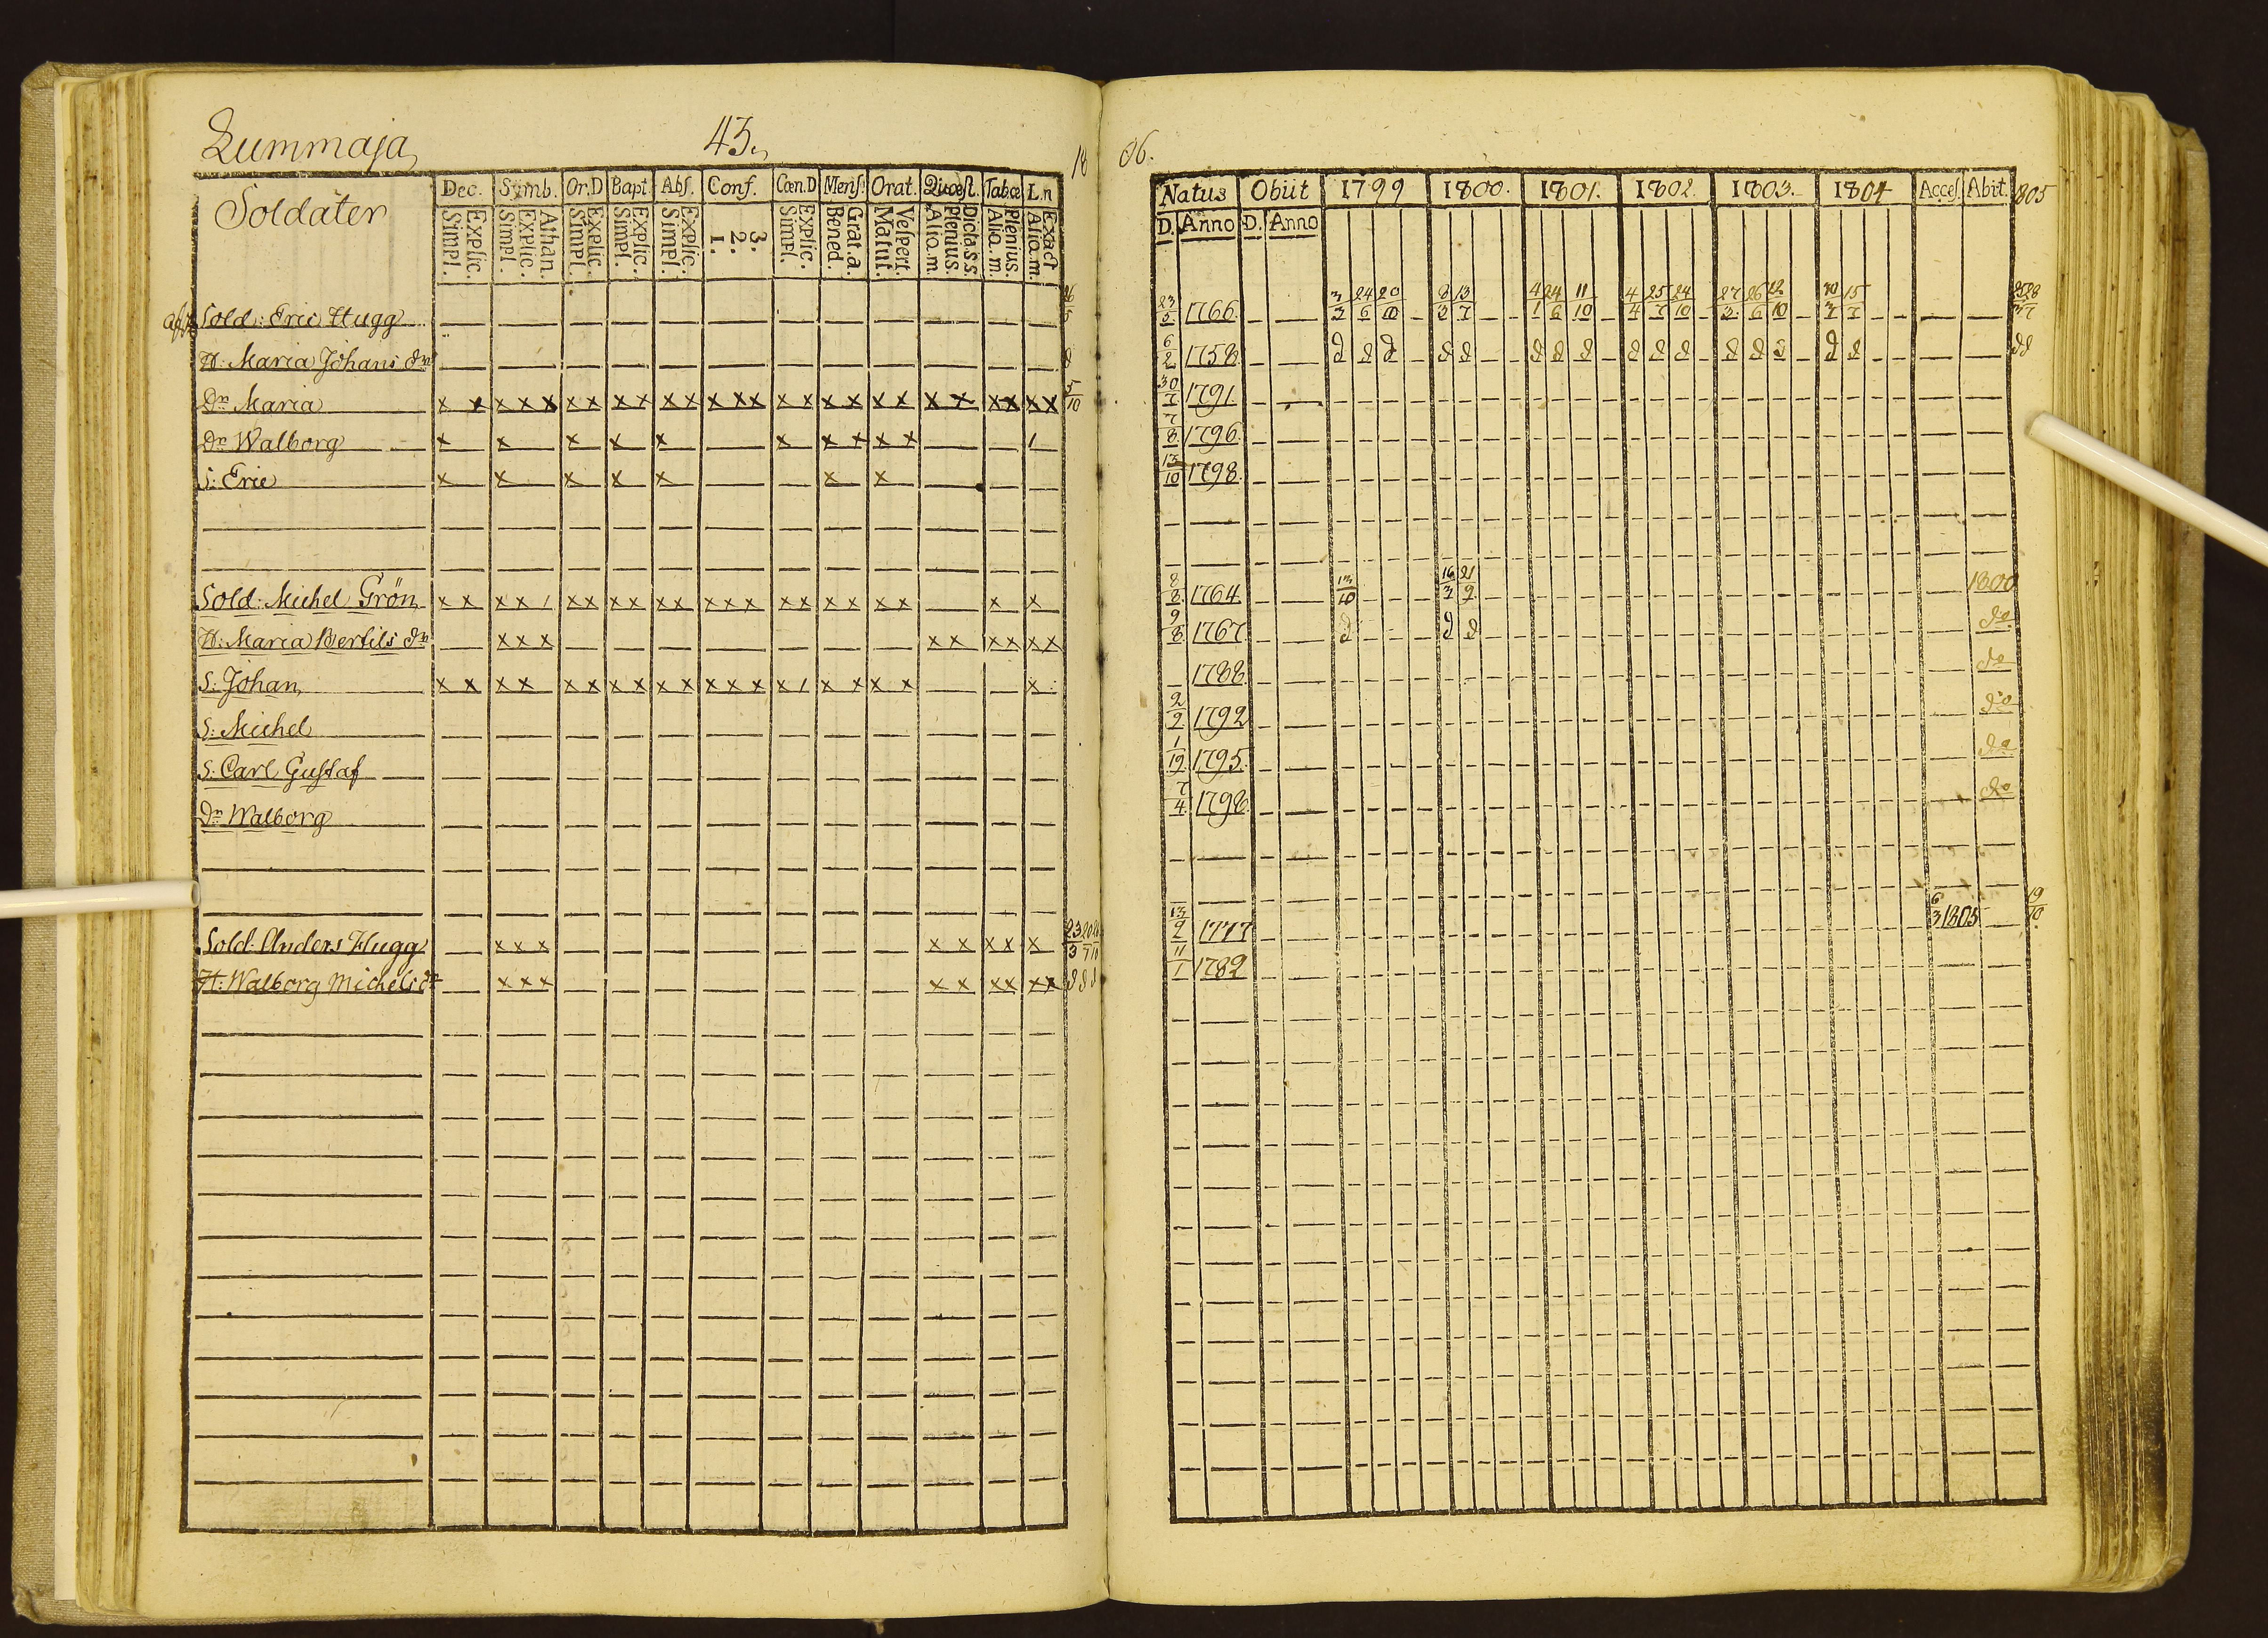 Lummaja 43. 18
Soldater Dec. Symb. Or.D Bapt. Abſ. Conf. Cœn.D Menſ. Orat. Quœſt. Tabœ L.n
Simpl. Explic. Simpl. Explic. Athan. Simpl. Explic. Simpl. Explic. Simpl. Explic. 1. 2. 3. Simpl. Explic. Bened. Grat.a. Matut. Veſpert. Alio.m. Plenius. Dicta.s.s. Alio.m. Plenius. Alio.m. Exact
Sold: Eric Hugg
H: Maria Johans dr
Dr Maria x x x x x x x x x x x x x x x x x x x x x x x x x x 5/10
Dr Walborg x x x x x x x x x x /
S: Eric x x x x x x x
Sold: Michel Grön x x x x / x x x x x x x x x x x x x x x x x x
H: Maria Bertils dr x x x x x x x x x
S: Johan x x x x x x x x x x x x x x / x x x x x
S: Michel
S: Carl Guſtaf
Dr Walborg
Sold: Anders Hugg x x x x x x x x
H: Walborg Michels dr x x x x x x x x x
06.
Natus Obiit 1799 1800. 1801. 1802. 1803. 1804 Acceſ. Abit. 1805
D. Anno D. Anno
23/5 1766 3/3 24/6 20/10 8/3 13/7 4/1 24/6 11/10 4/4 25/7 24/10 27/3 26/6 15/7
6/2 1758
30/7 1791
7/8 1796
13/10 1798
8/8 1764 13/10 16/3 21/9 1800
9/8 1767 do
1788 do
2/9 1792 do
1/19 1795 do
7/4 1798 do
13/2 1777 6/3 1805 19/10
11/1 1782